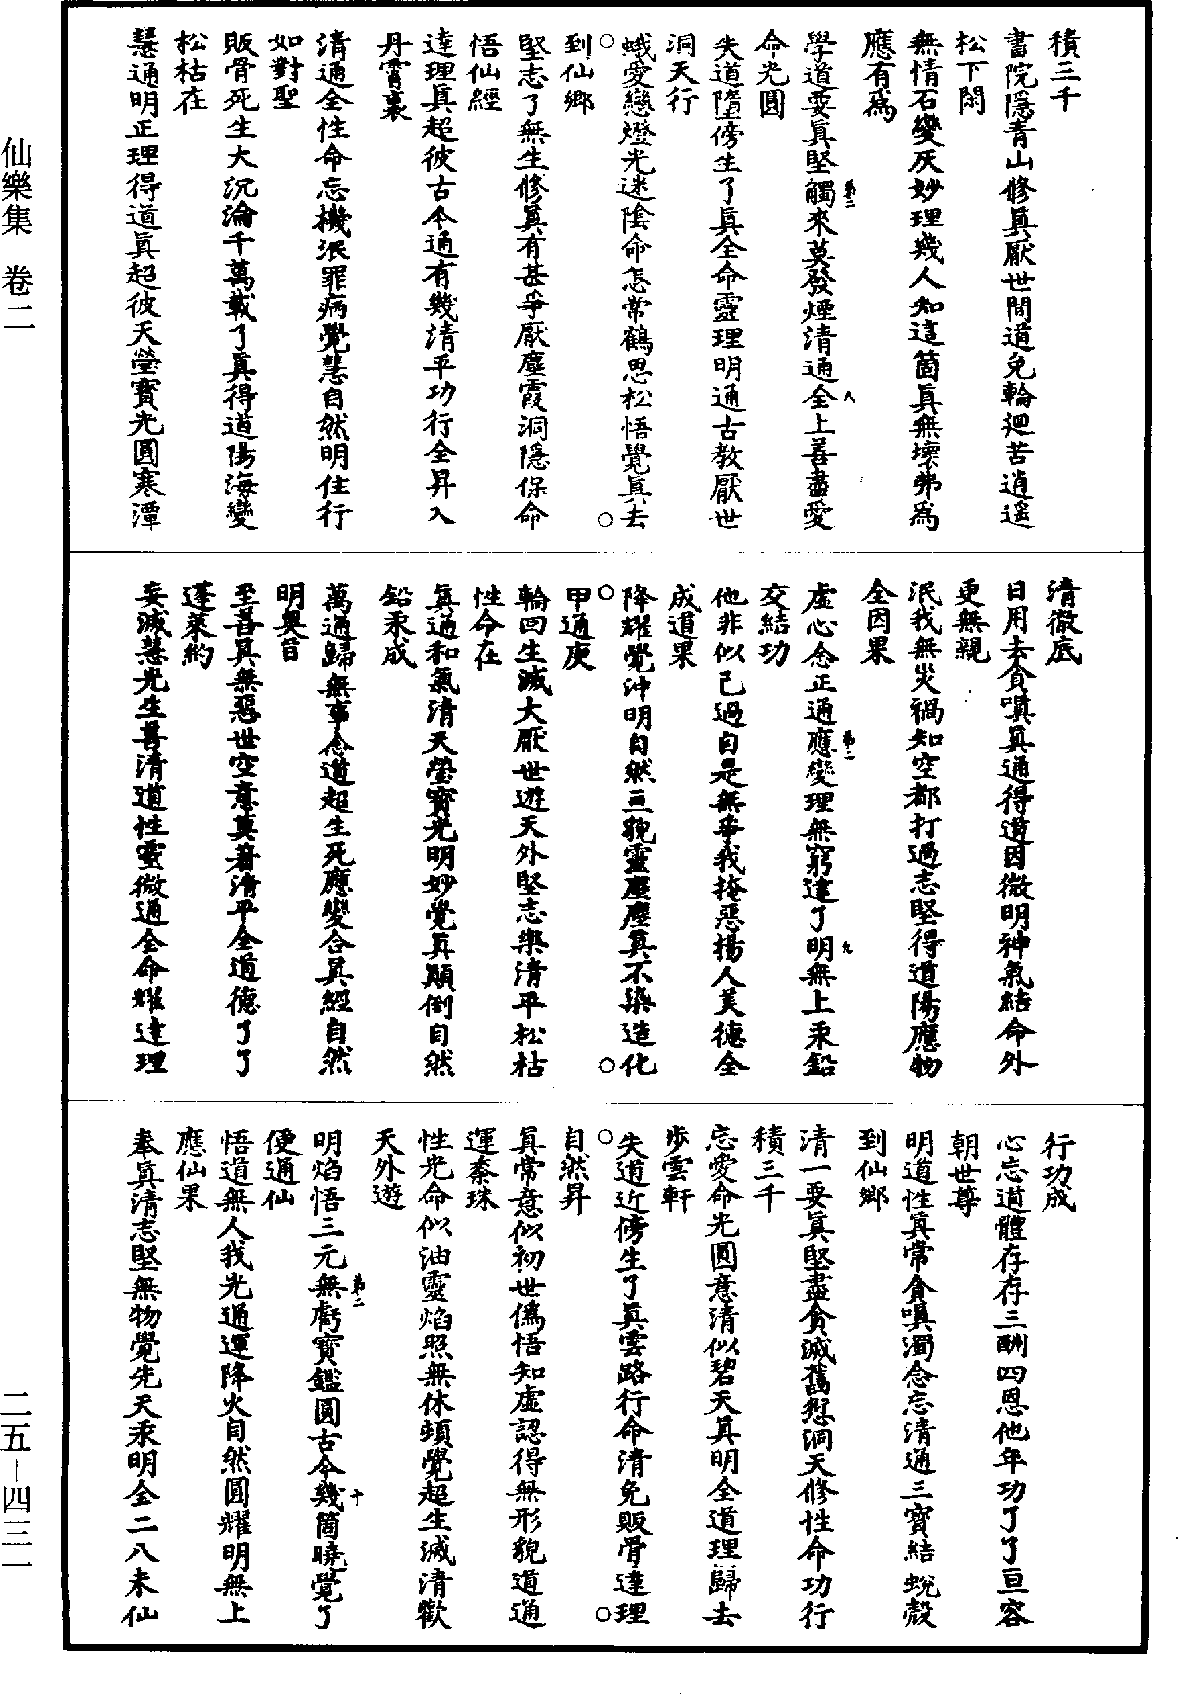 積三千
書院隱青山修真厭世間道免輪迴苦逍遥
松下閑
無情石變灰妙理幾人知這箇真無壞弗爲
應有爲
學道要真堅觸來莫發煙清通全上善盡愛
第二
八
命光圓
失道墮傍生了真全命靈理明通古教厭世
洞天行
蛾愛戀燈光迷陰命怎常鶴思松悟覺真去
到仙鄉
堅志了無生修真有甚爭厭塵霞洞隱保命
悟仙經
達理真超彼古今通有幾清平功行全昇入
丹霄裏
清通全性命忘機泯罪病覺慧自然明住行
如對聖
販骨死生大沉淪千萬載了真得道陽海變
松枯在
慧通明正理得道真超彼天瑩寶光圓寒潭
清徹底
日用去貪嗔真通得道因微明神氣結命外
更無親
泯我無災禍知空都打過志堅得道陽應物
全因果
虛心念正通應變理無窮達了明無上汞鉛
第二
九
交結功
他非似己過自是無爭我掩惡揚人美德全
成道果
降耀覺沖明自然亘貌靈塵塵真不染造化
甲通庚
輪回生滅大厭世遊天外堅志樂清平松枯
性命在
真通和氣清天瑩寶光明妙覺真顛倒自然
鉛汞成
萬通歸無事念道超生死應變合真經自然
明奧旨
至善真無惡世空意莫著清平全道德了了
蓬萊約
妄滅慧光生善清道性靈微通全命耀達理
行功成
心忘道體存存三酬四恩他年功了了亘容
朝世尊
明道性真常貪嗔濁念忘清通三寶結蛻殼
到仙鄉
清一要真堅盡貪滅舊愆洞天修性命功行
積三千
忘愛命光圓意清似碧天真明全道理歸去
步雲軒
失道近傍生了真雲路行命清免販骨達理
自然昇
真常意似初世僞悟知虛認得無形貌道通
運黍珠
性光命似油靈焰照無休頓覺超生滅清歡
天外遊
明焰悟三元無虧寶鑑圓古今幾箇曉覺了
第二
十
便通仙
悟道無人我光通運降火自然圓耀明無上
應仙果
奉真清志堅無物覺先天汞明全二八未仙
仙樂集 卷二
二五–四三一